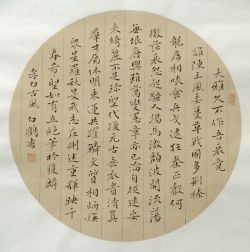 大雅久不作吾衰竟
誰陳王風委蔓草戰國多荊榛
龍虎相啖食兵戈逮狂秦正聲何
微茫哀怨起騷人揚馬激頹波開流蕩
無垠廢興雖萬變憲章亦已淪自從建安
來綺麗不足珍聖代復元古垂衣貴清真
羣才屬休明乘運共躍鱗文質相炳煥
眾星羅秋旻我志在刪述垂輝映千
春希聖如有立絕筆於獲麟
李白古風 白鶴書